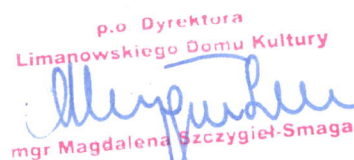 p.o Dyrektora
Limanowskiego Domu Kultury
mgr Magdalena Szczygieł-Smaga